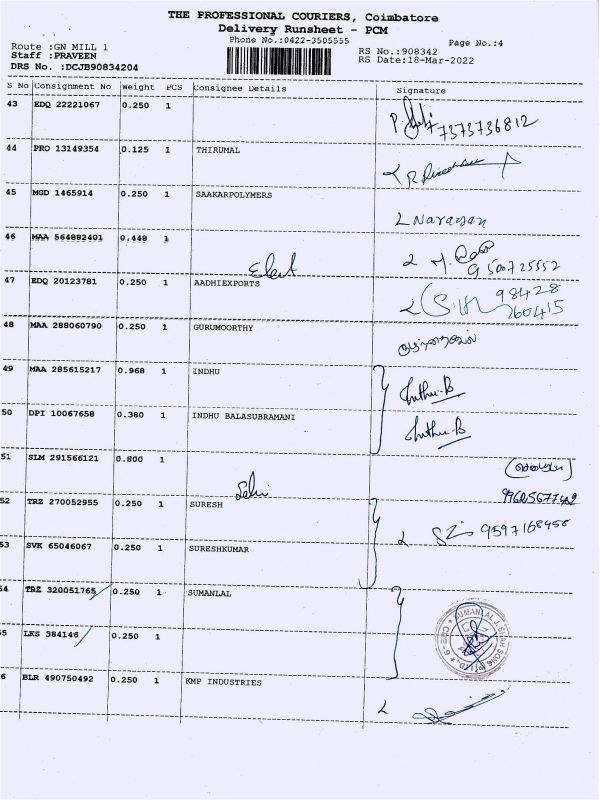 THE PROFESSIONAL COURIERS, Coimbatore
Delivery Runsheet - PCM
Phone No.:0422-3505555
Page No.:4
Route :GN MILL 1
RS No.:908342
Staff :PRAVEEN
RS Date:18-Mar-2022
DRS No. :DCJB90834204
S No Consignment No Weight PCS Consignee Details Signature
43 EDQ 22221067 0.250 1
7373736812
44 PRO 13149354 0.125 1 THIRUMAL
45 MGD 1465914 0.250 1 SAAKARPOLYMERS
Narayan
46 MAA 564882401 0.448 1
9500725552
47 EDQ 20123781 0.250 1 AADHIEXPORTS
98428
260415
48 MAA 288060790 0.250 1 GURUMOORTHY
49 MAA 285615217 0.968 1 INDHU
Inthu-B
50 DPI 10067658 0.380 1 INDHU BALASUBRAMANI
Inthu-B
51 SLM 291566121 0.800 1
52 TRZ 270052955 0.250 1 SURESH
9597168458
53 SVK 65046067 0.250 1 SURESHKUMAR
54 TRZ 320051765 0.250 1 SUMANLAL
55 LKS 384146 0.250 1
6 BLR 490750492 0.250 1 KMP INDUSTRIES